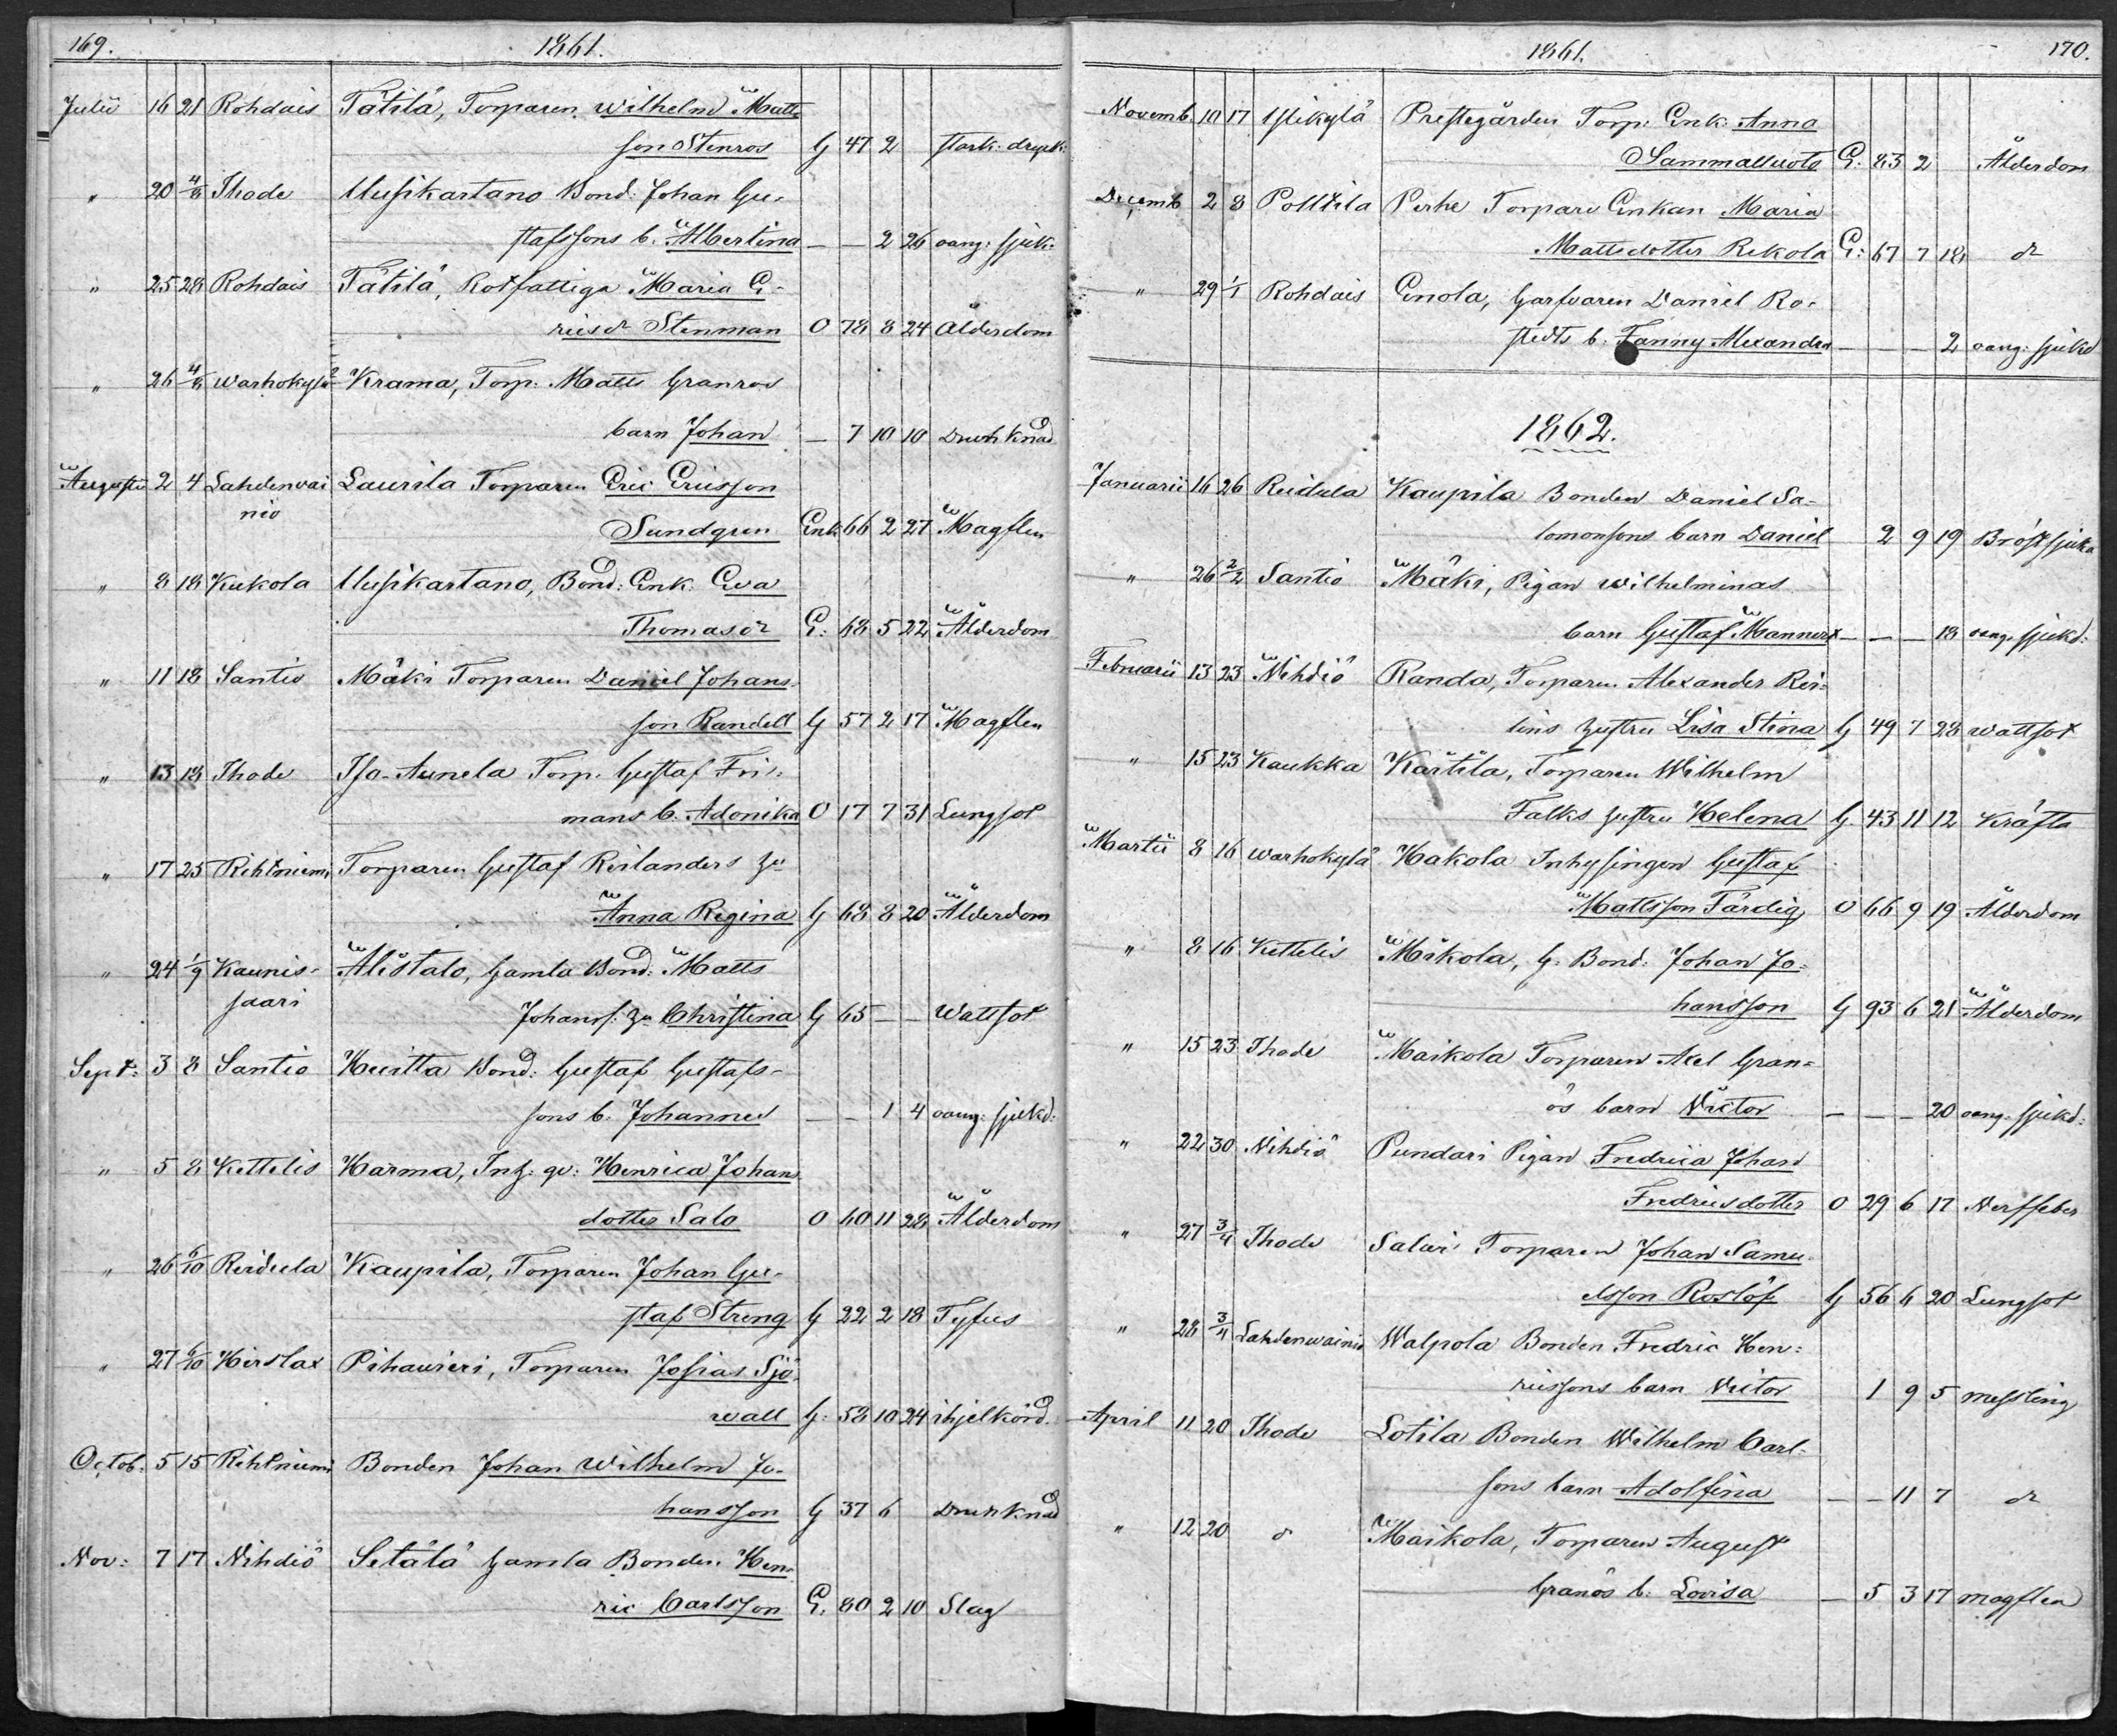 169. 1861.
Julii 16 21 Rohdais Tätilä, Torparen Wilhelm Matts
son Stenros G 47 2 stark: dryck:
" 20 4/8 Thode Uusikartano Bond: Johan Gu-
stafssons b. Albertina — — 2 26 oang: sjuk.
" 25 28 Rohdais Tätilä, Rotfattiga Maria E-
ricsdr Stenman O 78 8 24 Ålderdom
" 26 4/8 Warhokylä Krama, Torp. Matts Granros
barn Johan — 7 10 10 Drunknad
Augusti 2 4 Lahdenwai Laurila Torparen Eric Ericsson
nio
Sundgren Enk. 66 2 27 Magflen
" 8 18 Kukola Uusikartano, Bond: Enk. Eva
Thomasdr E: 68 5 22 Ålderdom
" 11 18 Santio Mäki Torparen Daniel Johans-
son Randell G 57 2 17 Magflen
" 13 18 Thode Iso-Aunela Torp. Gustaf Fri-
mans b. Adonika O 17 7 31 Lungsot
" 17 25 Rihtniemi Torparen Gustaf Reilanders hu
Anna Regina G 68 8 20 Ålderdom
" 24 1/9 Kaunis- Alistalo, Gamla Bond: Matts
saari
Johanss: hu Christina G 65 — — Wattsot
Sept: 3 8 Santio Huitta Bond: Gustaf Gustafs-
sons b. Johannes — — 1 4 oang: sjukd:
" 5 8 Kettelis Harma, Inh: qv: Henrica Johans
dotter Salo O 60 11 28 Ålderdom
" 26 6/10 Reidula Kaupila, Torparen Johan Gu-
staf Streng G 22 2 18 Tyfus
" 27 6/10 Hirslax Pihawieri, Torparen Josias Sjö-
wall G: 58 10 24 ihjelkörd.
Octob: 5 15 Rihtniemi Bonden Johan Wilhelm Jo-
hansson G 37 6 Drunknad
Nov: 7 17 Nihdiö Setälä Gamla Bonden Hen-
ric Carlsson E. 80 2 10 Slag
1861. 170.
Novemb. 10 17 Ylikylä Prestegården Torp. Enk. Anna
Sammalluoto E: 83 2 Ålderdom
Decemb 2 8 Polttila Perhe Torpare Enkan Maria
Mattsdotter Rekola E: 67 7 18 dr
" 29 1/1 Rohdais Enola, Garfvaren Daniel Ro-
stedts b. Fanny Alexandra — — — 2 oang: sjukd
1862.
Januarii 16 26 Reidula Kaupila Bonden Daniel Sa-
lomonsons barn Daniel 2 9 19 Bröstsjuka
" 26 2/2 Santio Mäki, Pigan Wilhelminas
barn Gustaf Mannert — — — 18 oang. sjukd:
Februarii 13 23 Nihdiö Randa, Torparen Alexander Rei-
lins hustru Lisa Stina G 49 7 28 Wattsot
" 15 23 Kaukka Kärtilä, Torparen Wilhelm
Falks hustru Helena G. 43 11 12 Kräfta
Martii 8 16 Warhokylä Hakola Inhysingen Gustaf
Mattsson Färdig O 66 9 19 Ålderdom
" 8 16 Kettelis Mikola, G. Bond: Johan Jo-
hansson G 93 6 21 Ålderdom
" 15 23 Thode Maikola Torparen Axel Gran-
ös barn Victor — — — 20 oang. sjukd:
" 22 30 Nihdiö Pundari Pigan Fredrica Johan
Fredricsdotter O 29 6 17 Nerffeber
" 27 3/4 Thode Salwi Torparen Johan Samu-
elsson Roslöf G 56 6 20 Lungsot
" 28 3/4 Lahdenwainio Walpola Bonden Fredric Hen-
ricssons barn Victor 1 9 5 messling
April 11 20 Thode Lotila Bonden Wilhelm Carl-
sons barn Adolfina — — 11 7 dr
" 12 20 d Maikola, Torparen August
Granös b: Lovisa — 5 3 17 magflen